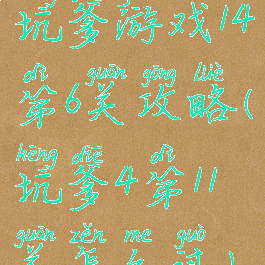 坑爹游戏14
dì guān gōng lüè
第6关攻略(
kēng diē dì
坑爹4第11
guān zěn me guò
关怎么过)